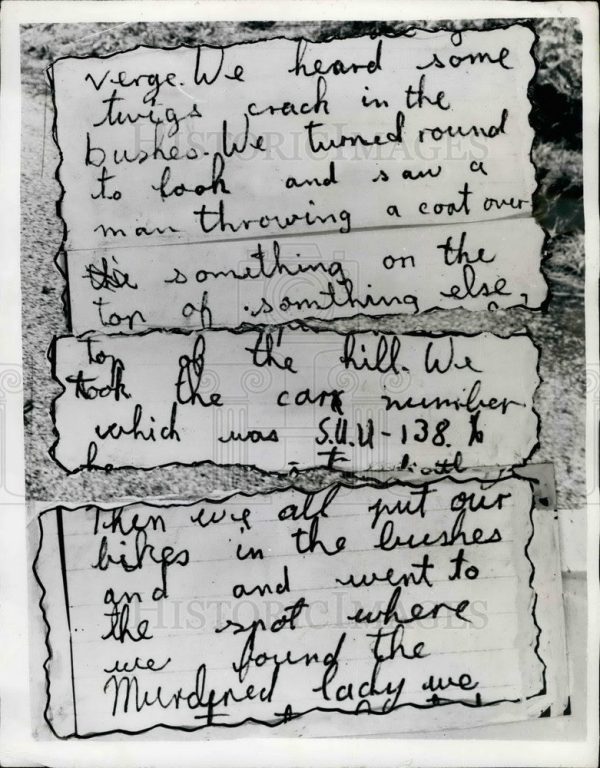 verge. We heard some
twigs crack in the
bushes. We turned round
to look and saw a
man throwing a coat over
something on the
top of somthing else
top of the hill. We
took the car number
which was S.U.U-138.
he
Then we all put our
bikes in the bushes
and and went to
the spot where
we found the
Murdered lady we
HISTORIC IMAGES
HISTORIC IMAGES